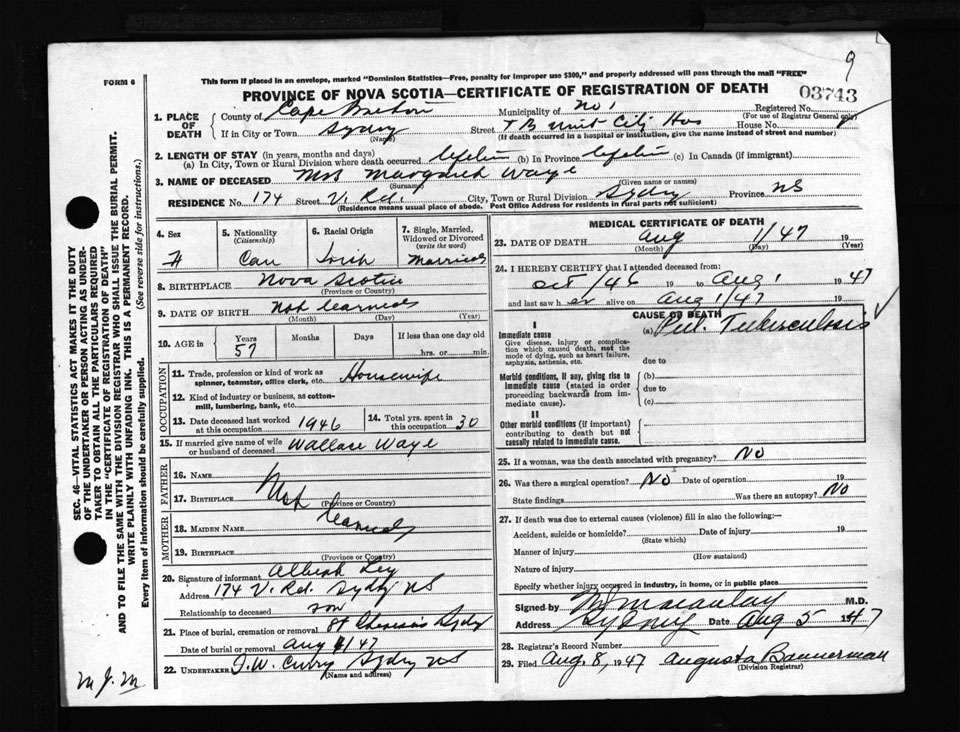 9
FORM 6
This form if placed in an envelope, marked "Dominion Statistics—Free, penalty for improper use $300," and properly addressed will pass through the mail "FREE"
PROVINCE OF NOVA SCOTIA—CERTIFICATE OF REGISTRATION OF DEATH
03743
1. PLACE OF DEATH
County of Cape Breton Municipality of No 1 Registered No.
(For use of Registrar General only)
If in City or Town Sydney Street T B Unit City Hos House No.
(Name) (If death occurred in a hospital or institution, give the name instead of street and number)
2. LENGTH OF STAY (in years, months and days)
(a) In City, Town or Rural Division where death occurred (b) In Province (c) In Canada (if immigrant)
3. NAME OF DECEASED Mrs Margaret Waye
(Surname) (Given name or names)
RESIDENCE No. 174 Street V. Rd. City, Town or Rural Division Sydney Province NS
(Residence means usual place of abode. Post Office Address for residents in rural parts not sufficient)
4. Sex
5. Nationality (Citizenship) Can
6. Racial Origin Irish
7. Single, Married, Widowed or Divorced (write the word) Married
8. BIRTHPLACE Nova Scotia
(Province or Country)
9. DATE OF BIRTH Not learned
(Month) (Day) (Year)
10. AGE in Years 57 Months Days If less than one day old
hrs. or min.
OCCUPATION
11. Trade, profession or kind of work as spinner, teamster, office clerk, etc. Housewife
12. Kind of industry or business, as cotton-mill, lumbering, bank, etc.
13. Date deceased last worked at this occupation 1946
14. Total yrs. spent in this occupation 30
15. If married give name of wife or husband of deceased Wallace Waye
FATHER
16. NAME
17. BIRTHPLACE Not
(Province or Country)
MOTHER
18. MAIDEN NAME learned
19. BIRTHPLACE
(Province or Country)
20. Signature of informant Albert
Address 174 V. Rd. Sydney NS
Relationship to deceased son
21. Place of burial, cremation or removal St Theresa's Sydney
Date of burial or removal Aug /47
22. UNDERTAKER J.W. Curry Sydney NS
(Name and address)
MEDICAL CERTIFICATE OF DEATH
23. DATE OF DEATH Aug 1/47 19
(Month) (Day) (Year)
24. I HEREBY CERTIFY that I attended deceased from:
Oct /46 19 to Aug 1 1947
and last saw her alive on Aug 1/47 19
CAUSE OF DEATH
I
Immediate cause (a) Pul. Tuberculosis
Give disease, injury or complication which caused death, not the mode of dying, such as heart failure, asphyxia, asthenia, etc.
due to
Morbid conditions, if any, giving rise to immediate cause (stated in order proceeding backwards from immediate cause).
(b)
due to
(c)
II
Other morbid conditions (if important) contributing to death but not causally related to immediate cause.
25. If a woman, was the death associated with pregnancy? No
26. Was there a surgical operation? No Date of operation 19
State findings Was there an autopsy? No
27. If death was due to external causes (violence) fill in also the following:—
Accident, suicide or homicide? Date of injury 19
(State which)
Manner of injury
(How sustained)
Nature of injury
Specify whether injury occurred in industry, in home, or in public place
Signed by Macaulay M.D.
Address Sydney Date Aug 5 1947
28. Registrar's Record Number
29. Filed Aug. 8, 1947 Augusta Bannerman
(Division Registrar)
SEC. 46—VITAL STATISTICS ACT MAKES IT THE DUTY
OF THE UNDERTAKER OR PERSON ACTING AS UNDER-
TAKER TO OBTAIN ALL THE PARTICULARS REQUIRED
IN THE "CERTIFICATE OF REGISTRATION OF DEATH"
AND TO FILE THE SAME WITH THE DIVISION REGISTRAR WHO SHALL ISSUE THE BURIAL PERMIT.
WRITE PLAINLY WITH UNFADING INK. THIS IS A PERMANENT RECORD.
Every item of information should be carefully supplied. (See reverse side for instructions.)
M J. M